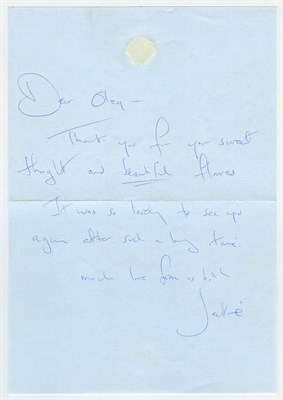 Dear Oleg –
Thank you for your sweet
thought and beautiful flowers
It was so lovely to see you
again after such a long time
much love from us both